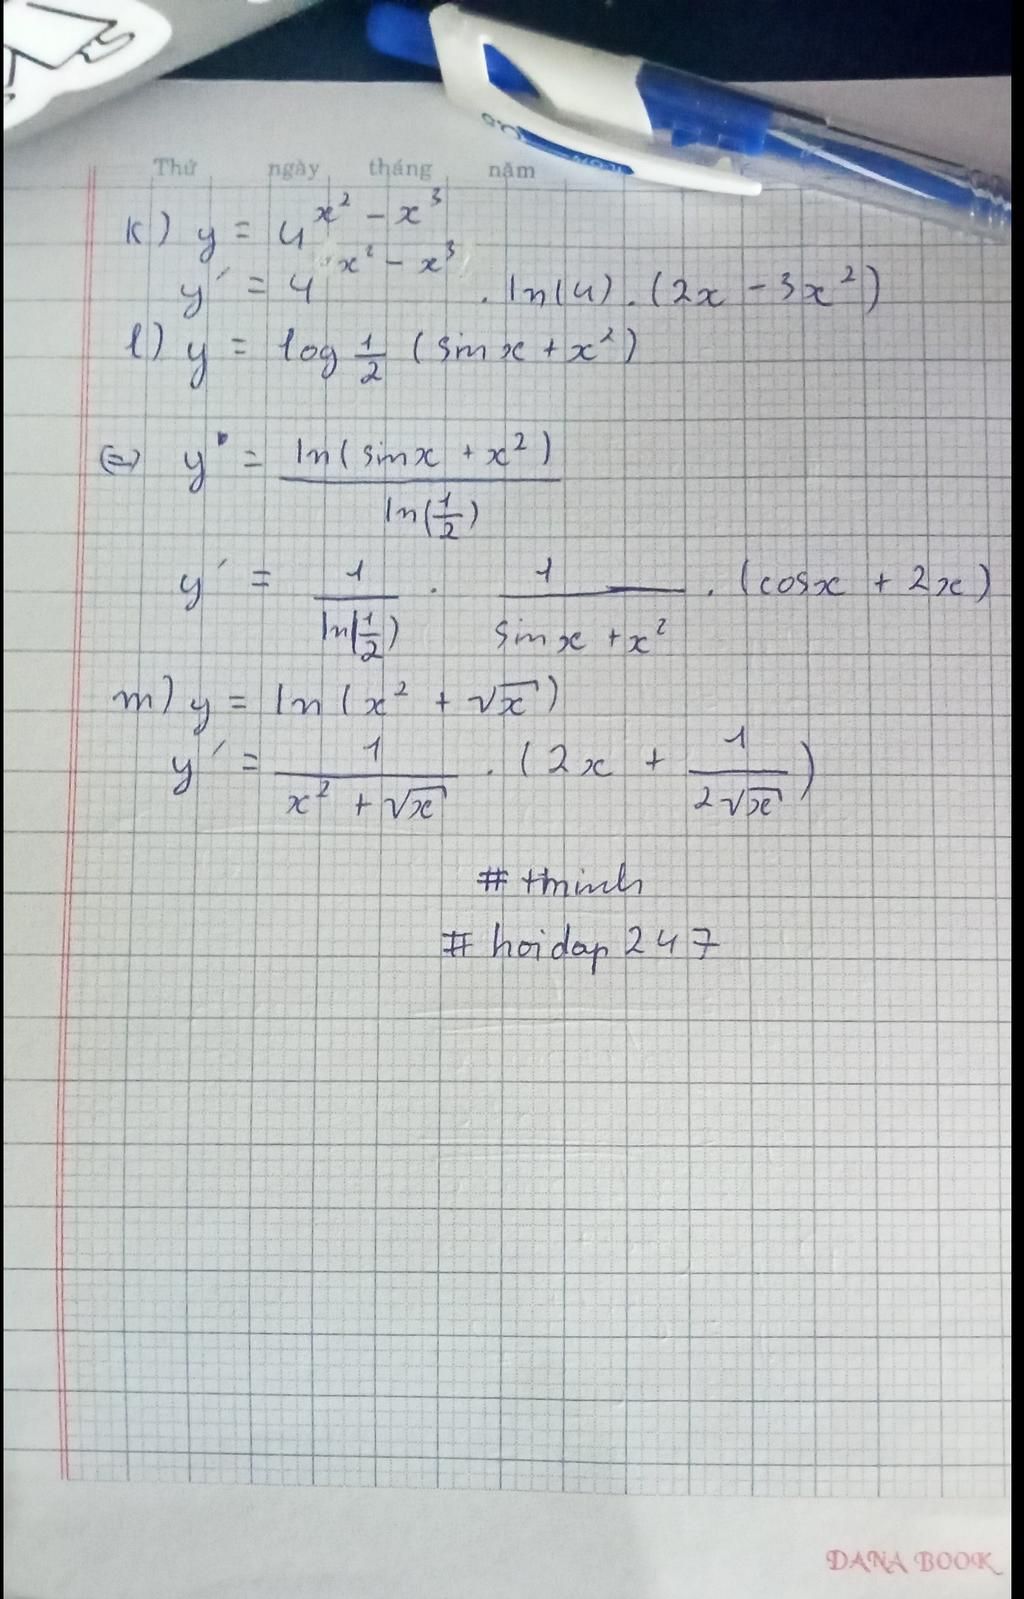 Thứ ngày tháng năm
k) y = 4^(x² - x³)
y' = 4^(x² - x³) . ln(4) . (2x - 3x²)
l) y = log 1/2 (sin x + x²)
(=) y = ln(sinx + x²) / ln(1/2)
y' = 1/ln(1/2) . 1/(sin x + x²) . (cosx + 2x)
m) y = ln(x² + √x)
y' = 1/(x² + √x) . (2x + 1/(2√x))
# tminh
# hoidap 247
DANA BOOK